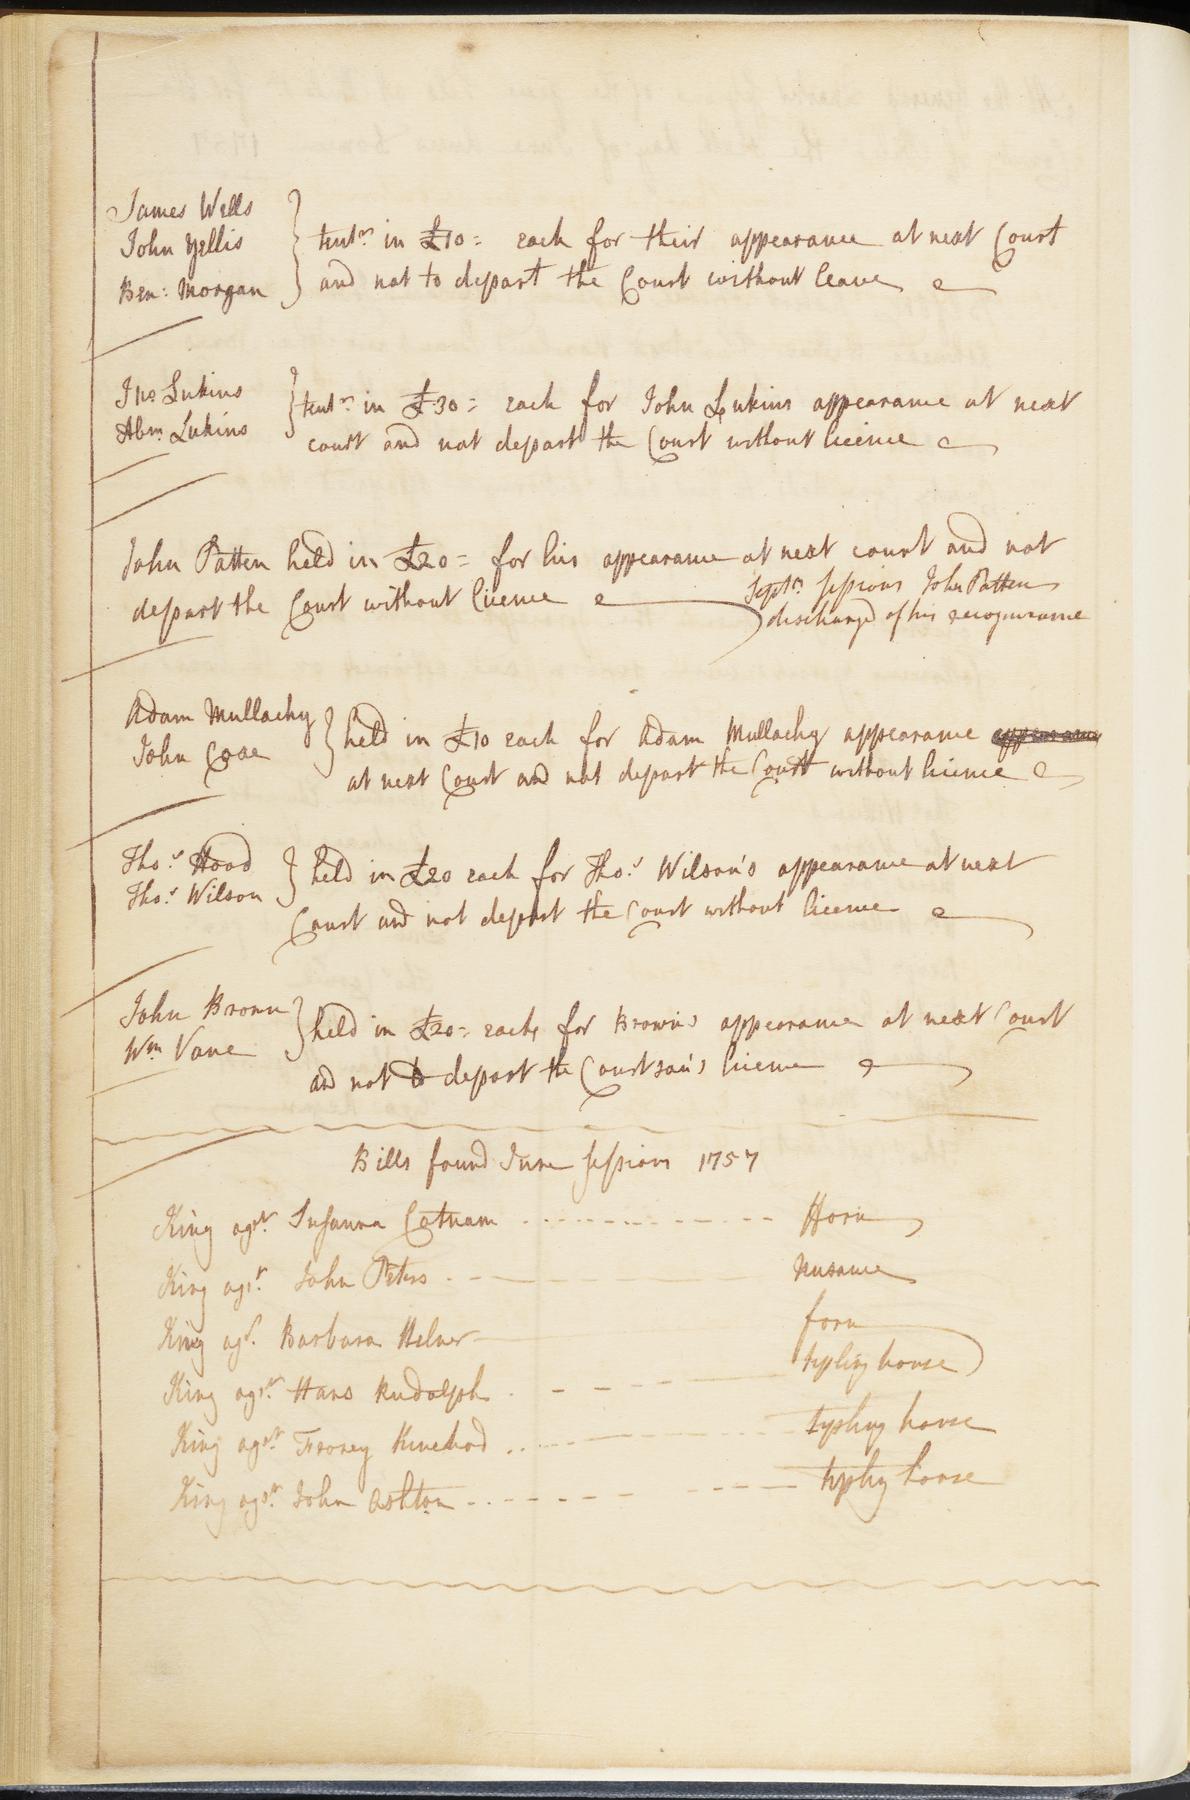 James Wells
John Yellis
Ben: Morgan
tent.r in £10= each for their appearance at next Court
and not to depart the Court without leave
Jno Lukins
Abm Lukins
tent.r in £30= each for John Lukins appearance at next
court and not depart the Court without licence
John Patten held in £20= for his appearance at next court and not
depart the Court without licence
Septr sessions John Patten
discharged of his recognizance
Adam Mullachy
John Coae
held in £10 each for Adam Mullachy appearance appearance
at next Court and not depart the Court without licence
Tho.s Hood
Tho.s Wilson
held in £20 each for Tho.s Wilson's appearance at next
Court and not depart the Court without licence
John Brown
Wm Vane
held in £20= each, for Brown's appearance at next Court
and not to depart the Court licence
Bills found June sessions 1757
King agst. Susanna Catnam Forn
King agst. John Peters Nusance
King agst. Barbara Helner forn
King agst. Hans Rudolph tipling house
King agst. Froney tipling house
King agst. John Ashton tipling house